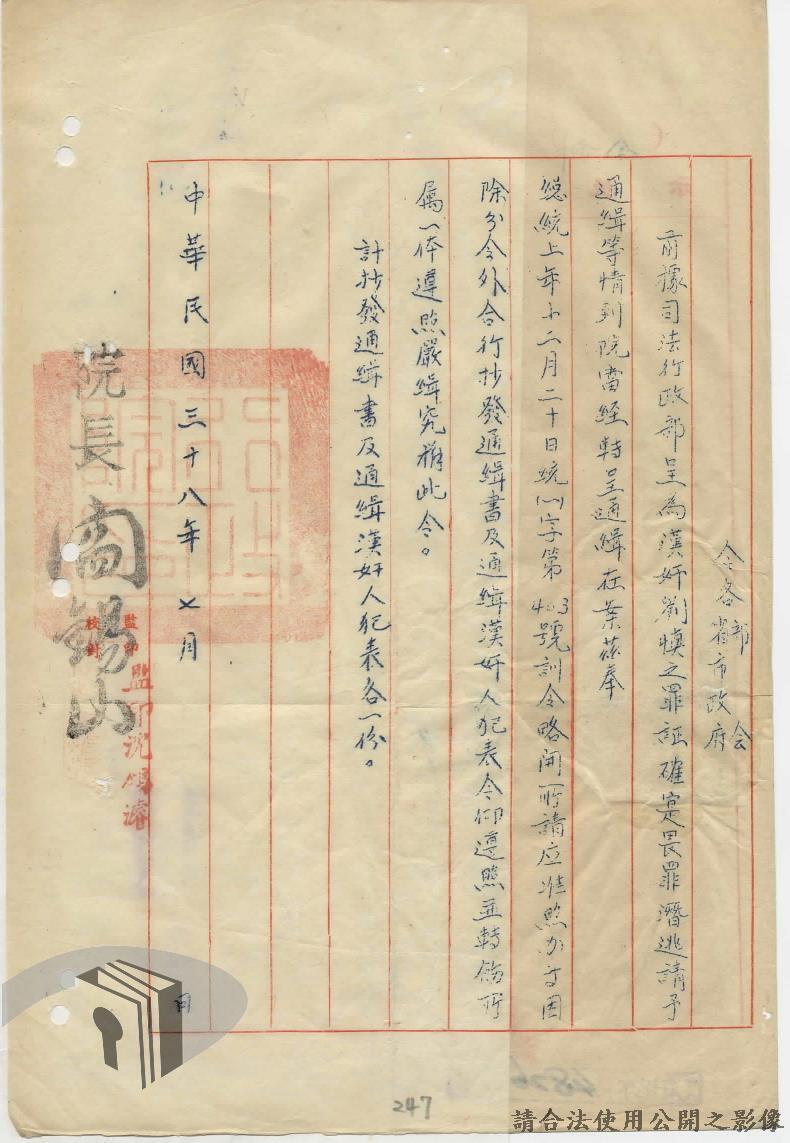 令各省市政府
部
会
前據司法行政部呈為漢奸劉慎之罪証確定畏罪潛逃請予
通緝等情到院當經轉呈通緝在案茲奉
總統上年十二月二十日統(二)字第403號訓令略開所請应准照办等因
除分令外合行抄發通緝書及通緝漢奸人犯表令仰遵照並轉飭所
屬一体遵照嚴緝究辦此令。
計抄發通緝書及通緝漢奸人犯表各一份。
中華民國三十八年七月 日
院長閻錫山
監印
校對
監印沈
247
請合法使用公開之影像